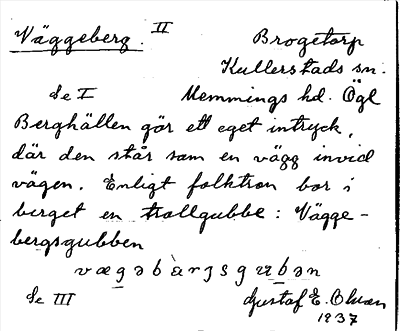 Väggeberg. II Brogetorp
Kullerstads sn.
Se I Memmings hd. Ögl
Berghällen gör ett eget intryck,
där den står som en vägg invid
vägen. Enligt folktron bor i
berget en trollgubbe: Vägge-
bergsgubben
Se III Gustaf E. Olsson
1937